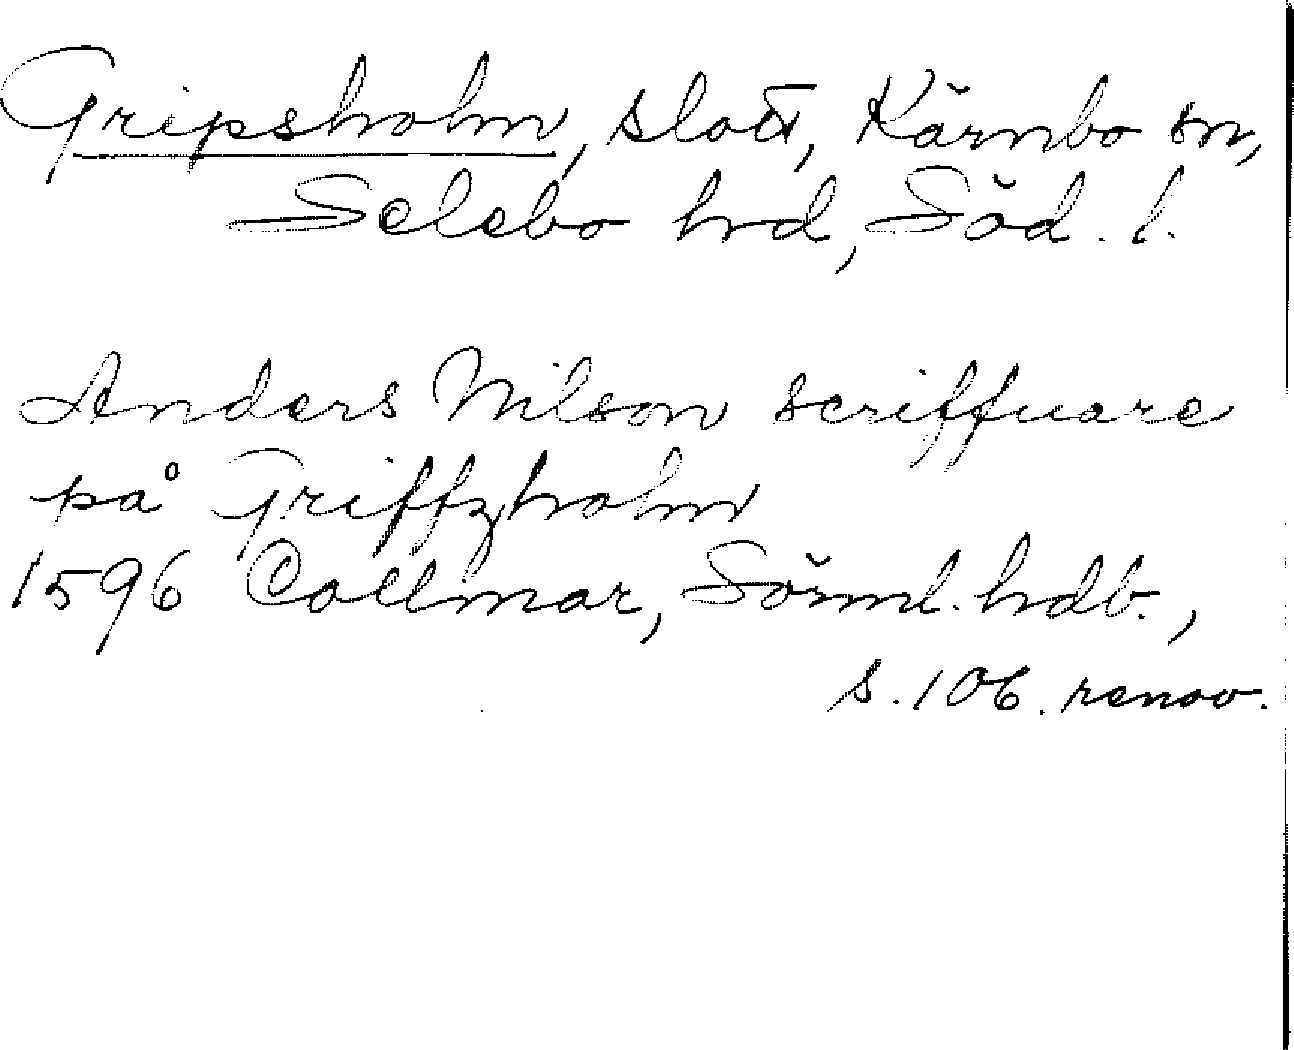 Gripsholm, slott, Kärnbo sn,
Selebo hrd, Söd. l.
Anders Nilson scriffuare
på Griffzholm
1596 Collmar, Sörml. hdb.,
s. 106. renov.